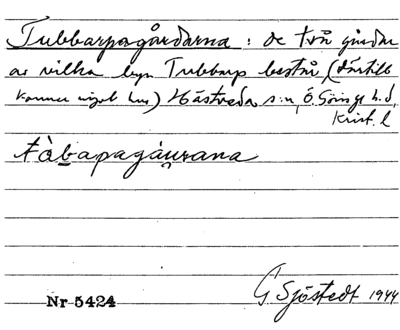 Tubbarpagårdarna : de två gårdar
av vilka byn Tubbarp består, (därtill
kommer något hus) Hästveda s:n, Ö. Göinge h.d,
Krist. l
tàbapagáurana
G Sjöstedt 1944
Nr 5424